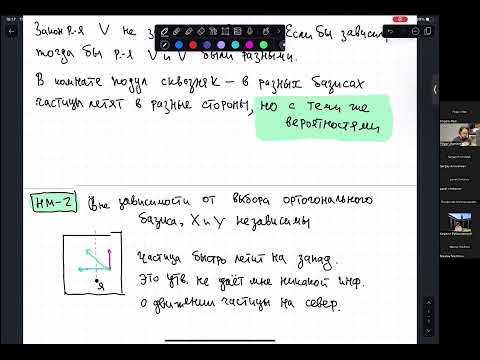 Закон р-я V не за Если бы зависил
тогда бы р-я V и V были разными.
В комнате подул сквозняк — в разных базисах
частицы летят в разные стороны, но с теми же
вероятностями
НМ-2 Вне зависимости от выбора ортогонального
базиса, X и Y независимы
Частица быстро летит на запад.
Это утв. не даёт мне никакой инф.
о движении частицы на север.
Я